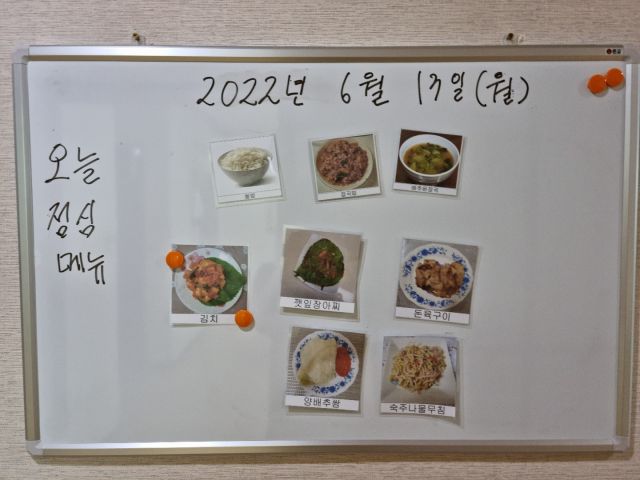 2022년 6월 13일(월)
오늘
점심
메뉴
쌀밥
잡곡밥
배추된장국
김치
깻잎장아찌
돈육구이
양배추쌈
숙주나물무침